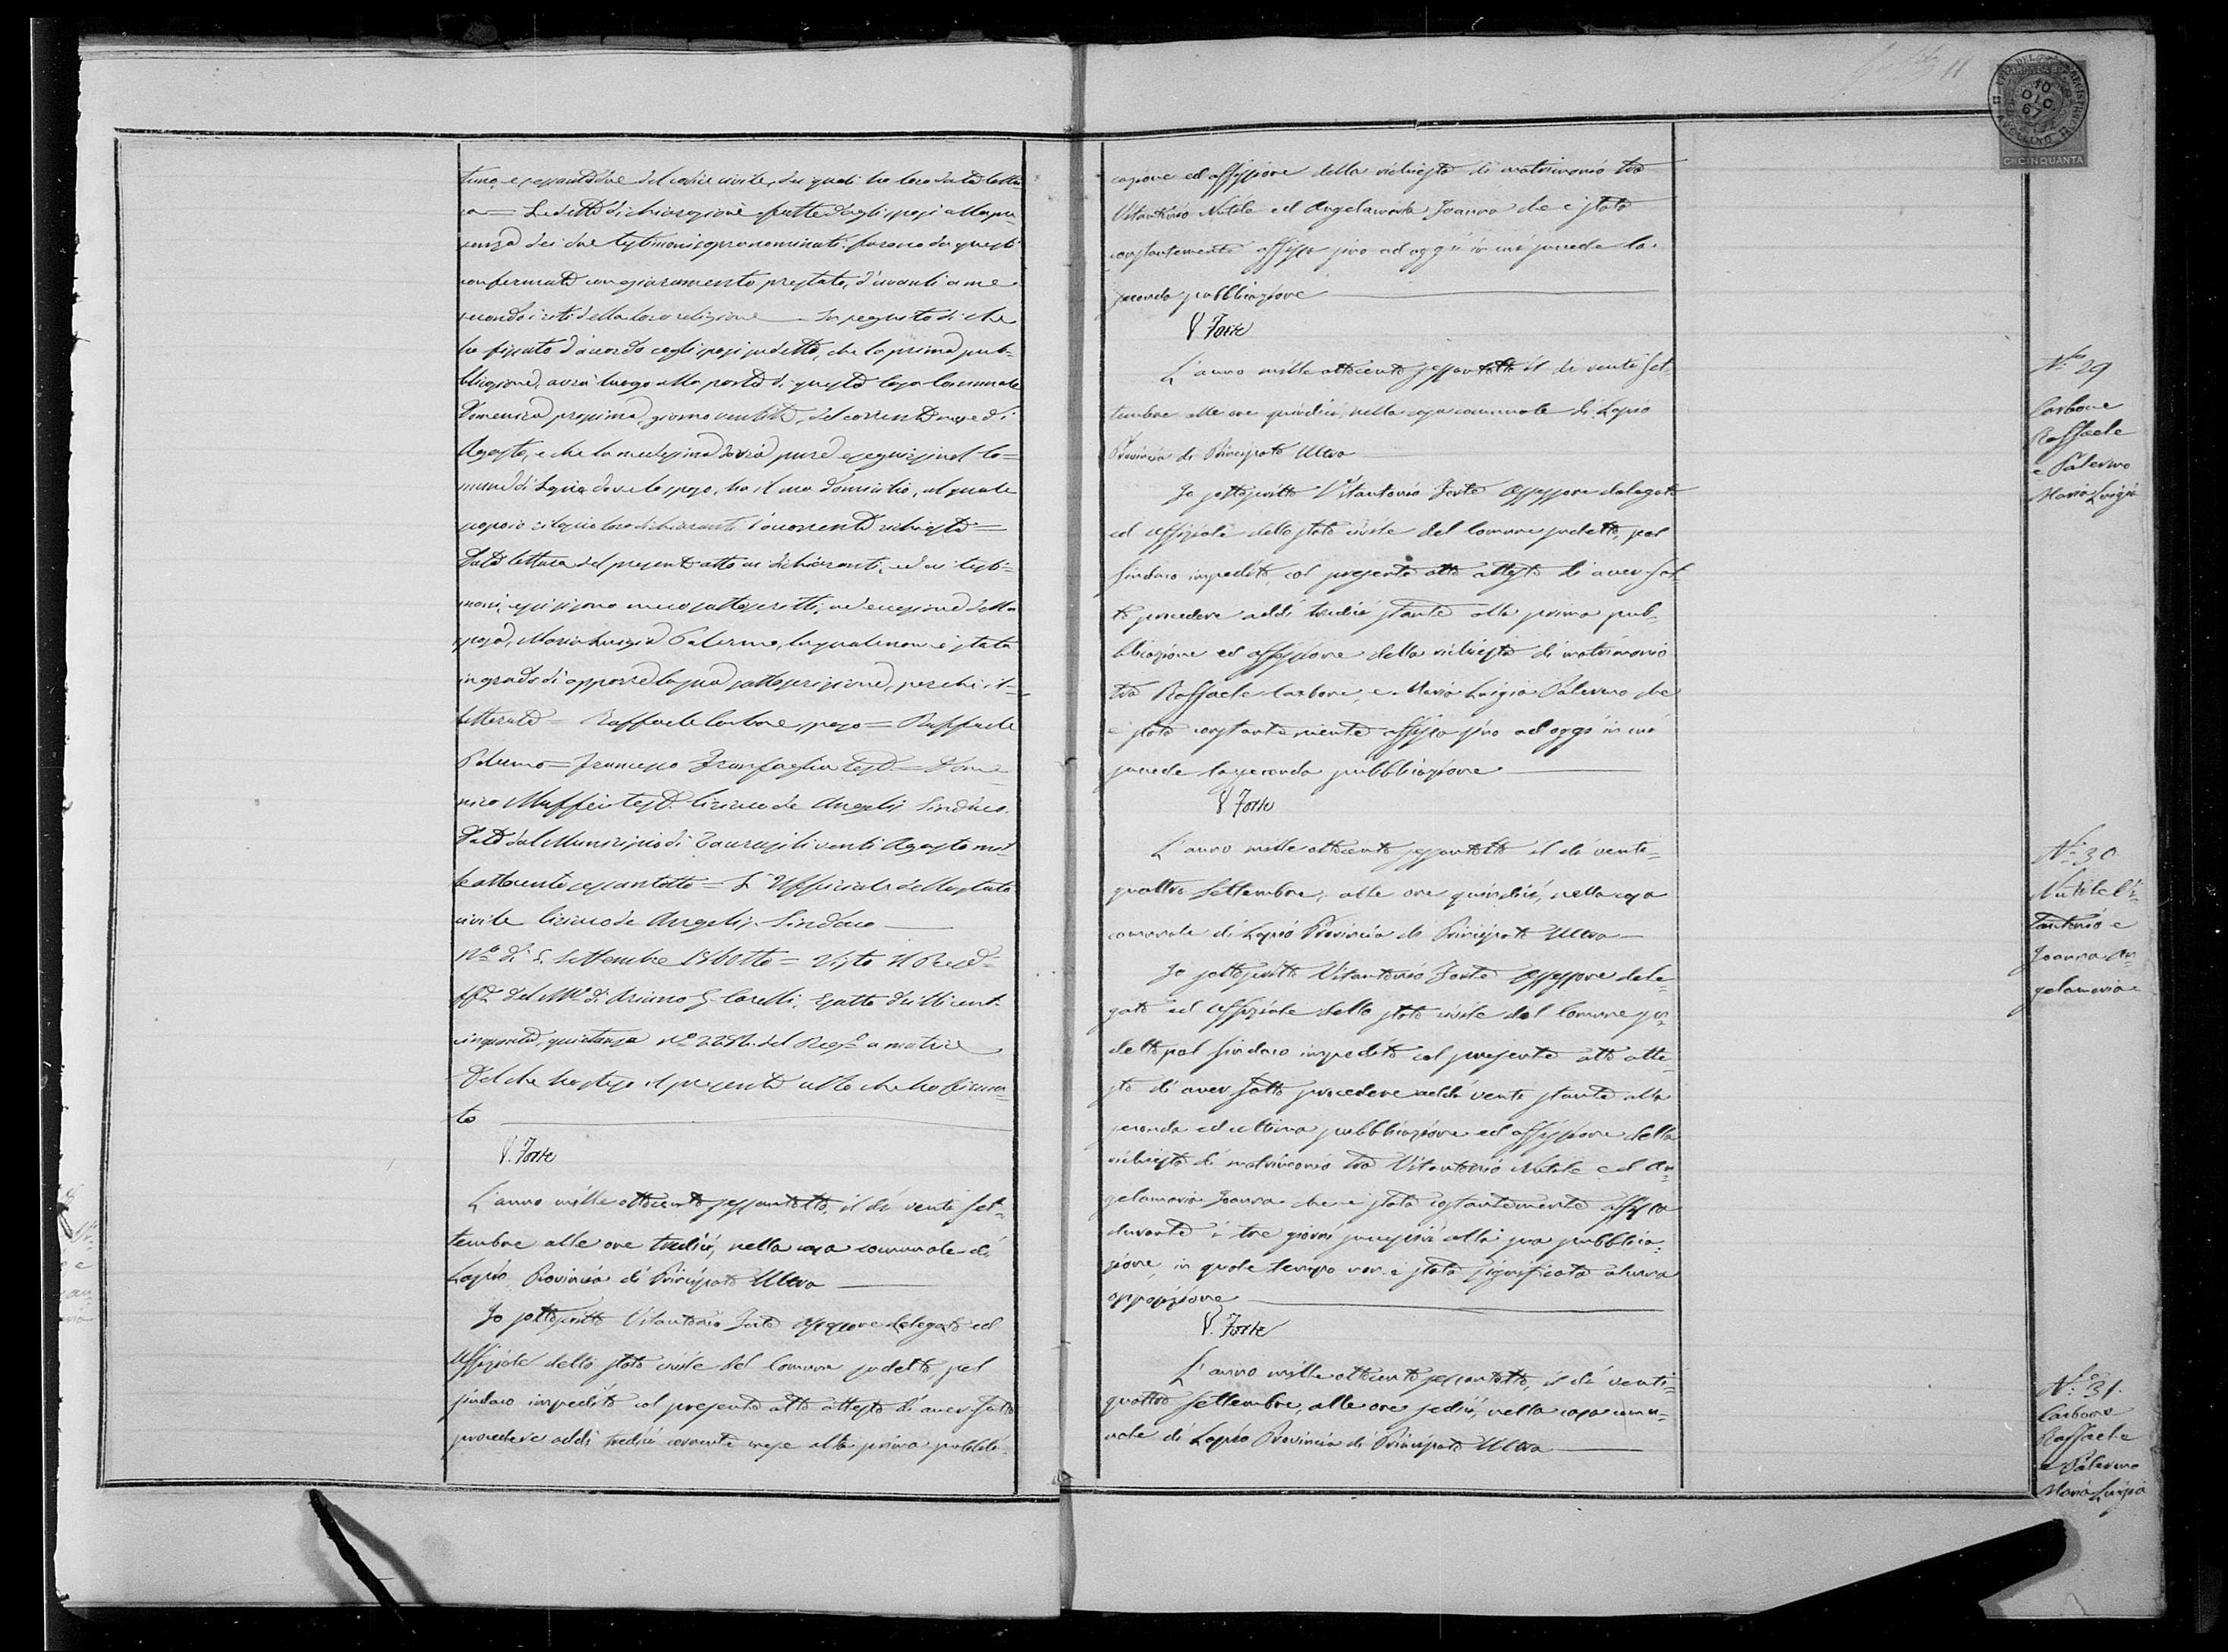 tuno, e sessantadue del codice civile, dei quali ho loro data lettu-
ra = Le dette dichiarazioni fatte dagli sposi alla pre-
senza dei due testimoni sopranominati furono da questi
confermate con giuramento prestato, d'avanti a me
secondo i riti della loro religione — In seguito di che
ho fissato d'accordo cogli sposi sudetti, che la prima pub-
blicazione, avrà luogo alla porta di questa Casa Comunale
Domenica prossima, giorno ventitre, del corrente mese di
Agosto, e che la medesima dovrà pure eseguirsi nel Co=
mune di Lapio dove lo sposo, ha il suo domicilio, al quale
loro dichiaranti l'occorrente richiesta =
Data lettura del presente atto ai dichiaranti, ed ai testi=
moni, essi si sono meco sottoscritti, ad eccezione della
sposa, Maria Luigia Palermo, la quale non è stata
in grado di apporre la sua sottoscrizione, perchè il=
letterata = Raffaele Carbone sposo = Raffaele
Palermo = Francesco Tranfaglia test.e = Dome
nico Maffei test.e Liciaco de Angelis Sindaco.
Data dal Municipio di Taurasi li venti Agosto mil
le ottocento sessantotto = L'Ufficiale dello stato
civile de Angelis Sindaco —
di 5 Settembre 1868 = Visto Il
del di Ariano G. Carelli, Esatte
cinquanta, quietanza N.o del Reg.o a matrice
Del che ho steso il presente atto che ho firma=
to
V. Forte
L'anno mille ottocento sessantotto, il dì venti Set=
tembre alle ore tredici, nella casa comunale di
Lapio Provincia di Principato Ultra —
Io sottoscritto Vitantonio Forte Assessore delegato ed
Uffiziale dello stato civile del Comune sudetto, pel
sindaco impedito col presente atto attesto di aver fatto
procedere addì tredici corrente mese alla prima pubbli-
11
10
DIC.
67
C.mi CINQUANTA
cazione ed affissione della richiesta di matrimonio tra
Vitantonio Nutile ed Angelamaria Joanna che è stata
constantemente affissa sino ad oggi in cui succede la
seconda pubblicazione
V. Forte
N.o 29
Carbone
Raffaele
e Palermo
Maria Luigia
L'anno mille ottocento sessantotto il dì venti Set-
tembre alle ore quindici, nella casa comunale di Lapio
Provincia di Principato Ultra
Io sottoscritto Vitantonio Forte Assessore delegato
ed Uffiziale dello stato civile del Comune sudetto, pel
Sindaco impedito, col presente atto attesto di aver fat-
to procedere addì tredici stante alla prima pub-
blicazione ed affissione della richiesta di matrimonio
tra Raffaele Carbone, e Maria Luigia Palermo che
è stata constantemente affissa sino ad oggi in cui
succede la seconda pubblicazione
V. Forte
N.o 30
Nutile Vi-
tantonio e
Joanna An-
gelamaria
L'anno mille ottocento sessantotto il dì venti=
quattro Settembre, alle ore quindici, nella casa
comunale di Lapio Provincia di Principato Ultra —
Io sottoscritto Vitantonio Forte Assessore dele=
gato ed Uffiziale dello stato civile del Comune su=
detto pel Sindaco impedito col presente atto atte=
sto di aver fatto procedere addì venti stante alla
seconda ed ultima pubblicazione ed affissione della
richiesta di matrimonio tra Vitantonio Nutile ed An=
gelamaria Joanna che è stata costantemente affissa
durante i tre giorni successivi alla sua pubblica=
zione, in quale tempo non è stata significata alcuna
opposizione
V. Forte
N.o 31.
Carbone
Raffaele
e Palermo
Maria Luigia
L'anno mille ottocento sessantotto, il dì venti=
quattro Settembre, alle ore sedici, nella casa comu=
nale di Lapio Provincia di Principato Ultra —